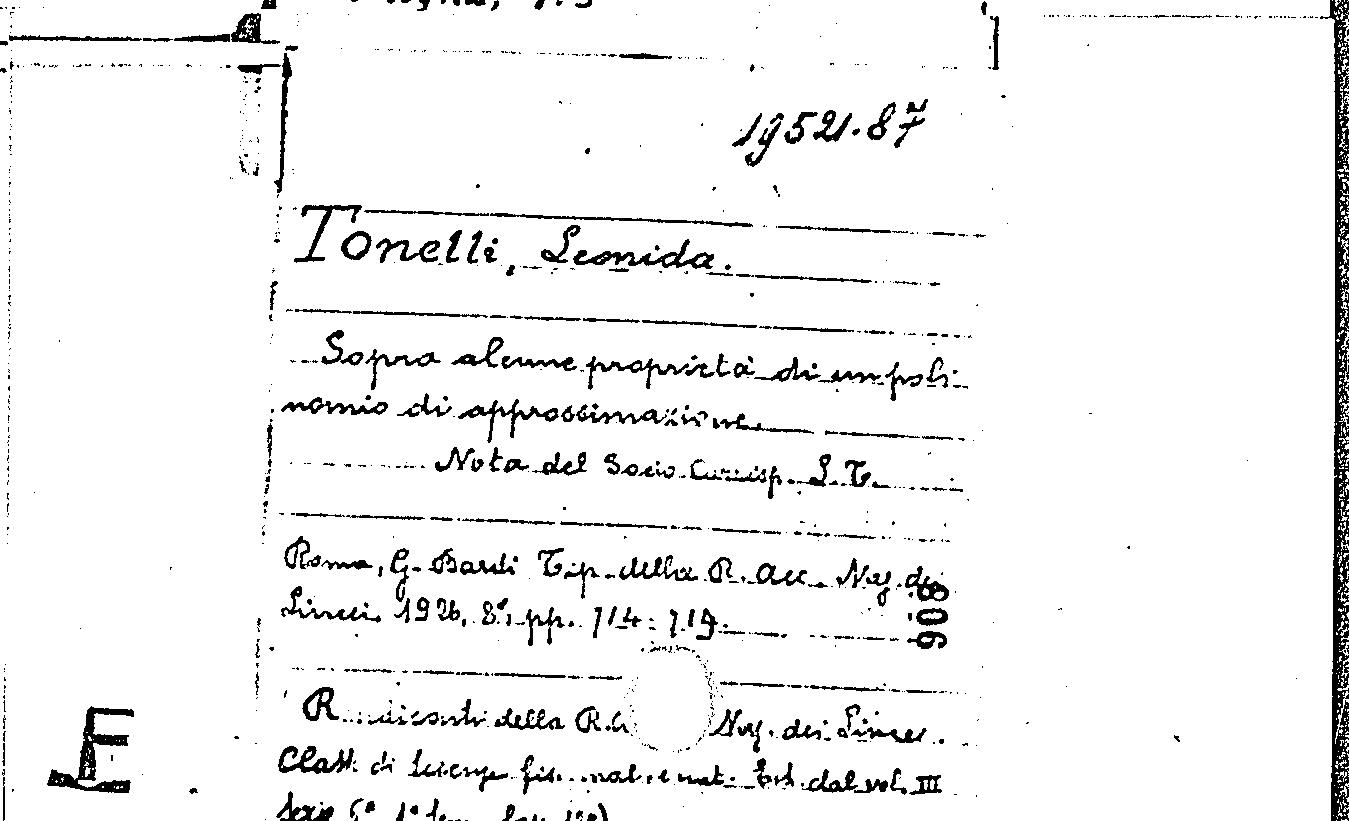 19521.87
Tonelli, Leonida.
Sopra alcune proprietà di un poli-
nomio di approssimazione.
Nota del Socio Corrisp. L. T.
Roma, G. Bardi Tip. della R. Acc. Naz. dei
Lincei. 1926, 8°, pp. 714-719.
908
Rendiconti della R. Naz. dei Lincei.
Classe di Scienze fis. mat. e nat. Est. dal vol. III
Serie 6ª 1° Sem. fasc. 12°)
E